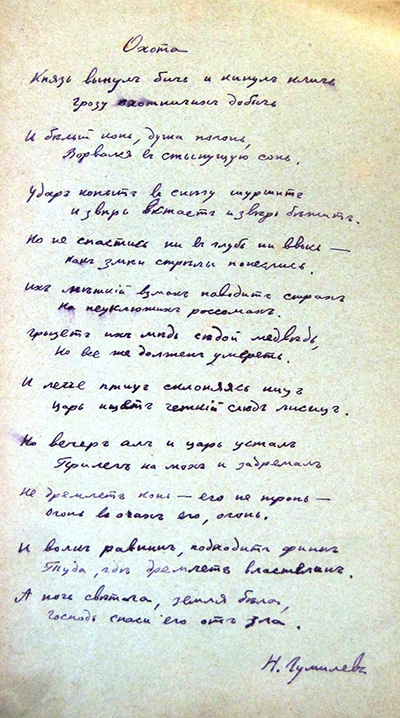 Охота
Князь вынулъ бичъ и кинулъ кличъ
Грозу охотничьихъ добычъ
И бѣлый конь, душа погонь,
Ворвался въ стынущую сонь.
Ударъ копытъ въ снѣгу шуршитъ
И звѣрь встаетъ и звѣрь бѣжитъ.
Но не спастись ни въ глубь ни ввысь —
Какъ змѣи стрѣлы понеслись.
Ихъ легкій взмахъ наводитъ страхъ
На неуклюжихъ россомахъ.
Грызетъ ихъ мѣдь сѣдой медвѣдь,
Но все же долженъ умереть.
И легче птицъ склоняясь ницъ
Царь ищетъ четкій слѣдъ лисицъ.
Но вечеръ алъ и царь усталъ
Прилегъ на мохъ и задремалъ
Не дремлетъ конь — его не тронь —
Огонь въ очахъ его, огонь.
И волкъ равнинъ, подходитъ финнъ
Туда, гдѣ дремлетъ властелинъ.
А ночь свѣтла, земля бѣла,
Господь спаси его отъ зла.
Н. Гумилевъ